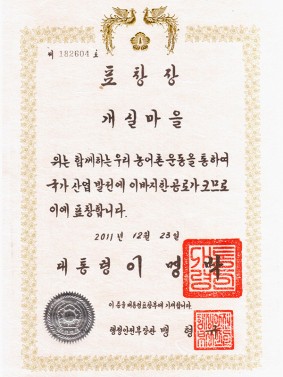 제 182604 호
표창장
개실마을
위는 함께하는 우리 농어촌 운동을 통하여
국가 산업 발전에 이바지한 공로가 크므로
이에 표창합니다.
2011년 12월 23일
대통령 이 명 박
이 증을 대통령표창부에 기재합니다.
행정안전부장관 맹 형 규